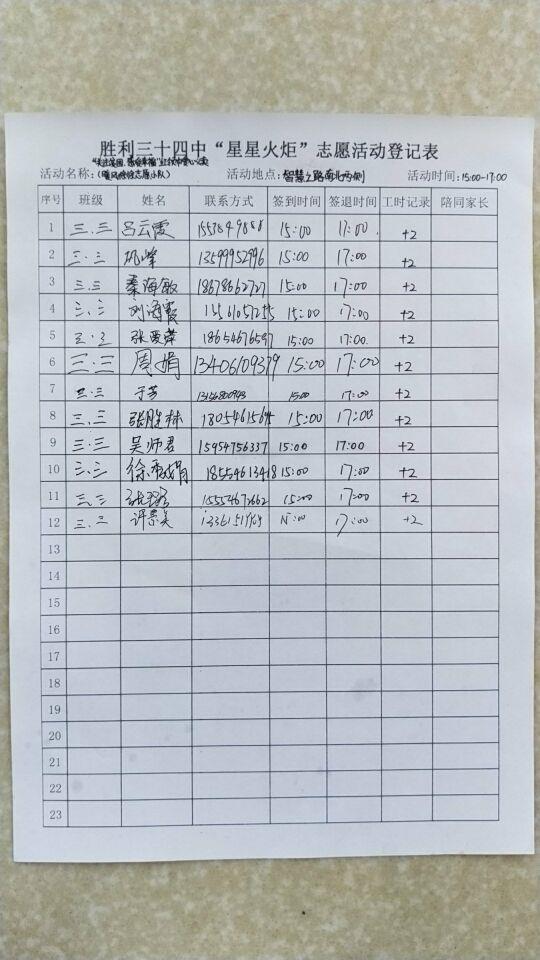 胜利三十四中“星星火炬”志愿活动登记表
活动名称：（暖风徐徐志愿小队） 活动地点：智慧之路南北两侧 活动时间：15:00-17:00
序号 班级 姓名 联系方式 签到时间 签退时间 工时记录 陪同家长
1 三.三 吕云霞 15:00 17:00. +2
2 三.三 15:00 17:00 +2
3 三.三 秦海敏 18678662727 15:00 17:00 +2
4 三.三 刘海霞 15:00 17:00 +2
5 三.三 18654676597 15:00 17:00. +2
6 三.三 周娟 13406109379 15:00 17:00 +2
7 三.三 于芳 15:00 17:00 +2
8 三.三 张胜林 15:00 17:00 +2
9 三.三 吴师君 15954756337 15:00 17:00 +2
10 三.三 徐秀娟 18554613418 15:00 17:00 +2
11 三.三 15:00 17:00 +2
12 三.三 15:00 17:00 +2
13
14
15
16
17
18
19
20
21
22
23